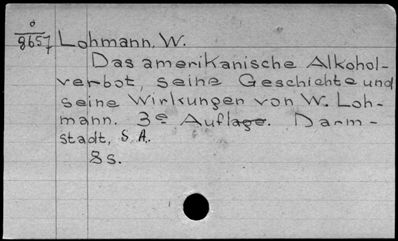 o
8657
Lohmann, W.
Das amerikanische Alkohol-
verbot, seine Geschichte und
seine Wirkungen von W. Loh-
mann. 3e Auflage. Darm-
stadt, S. A.
8 s.